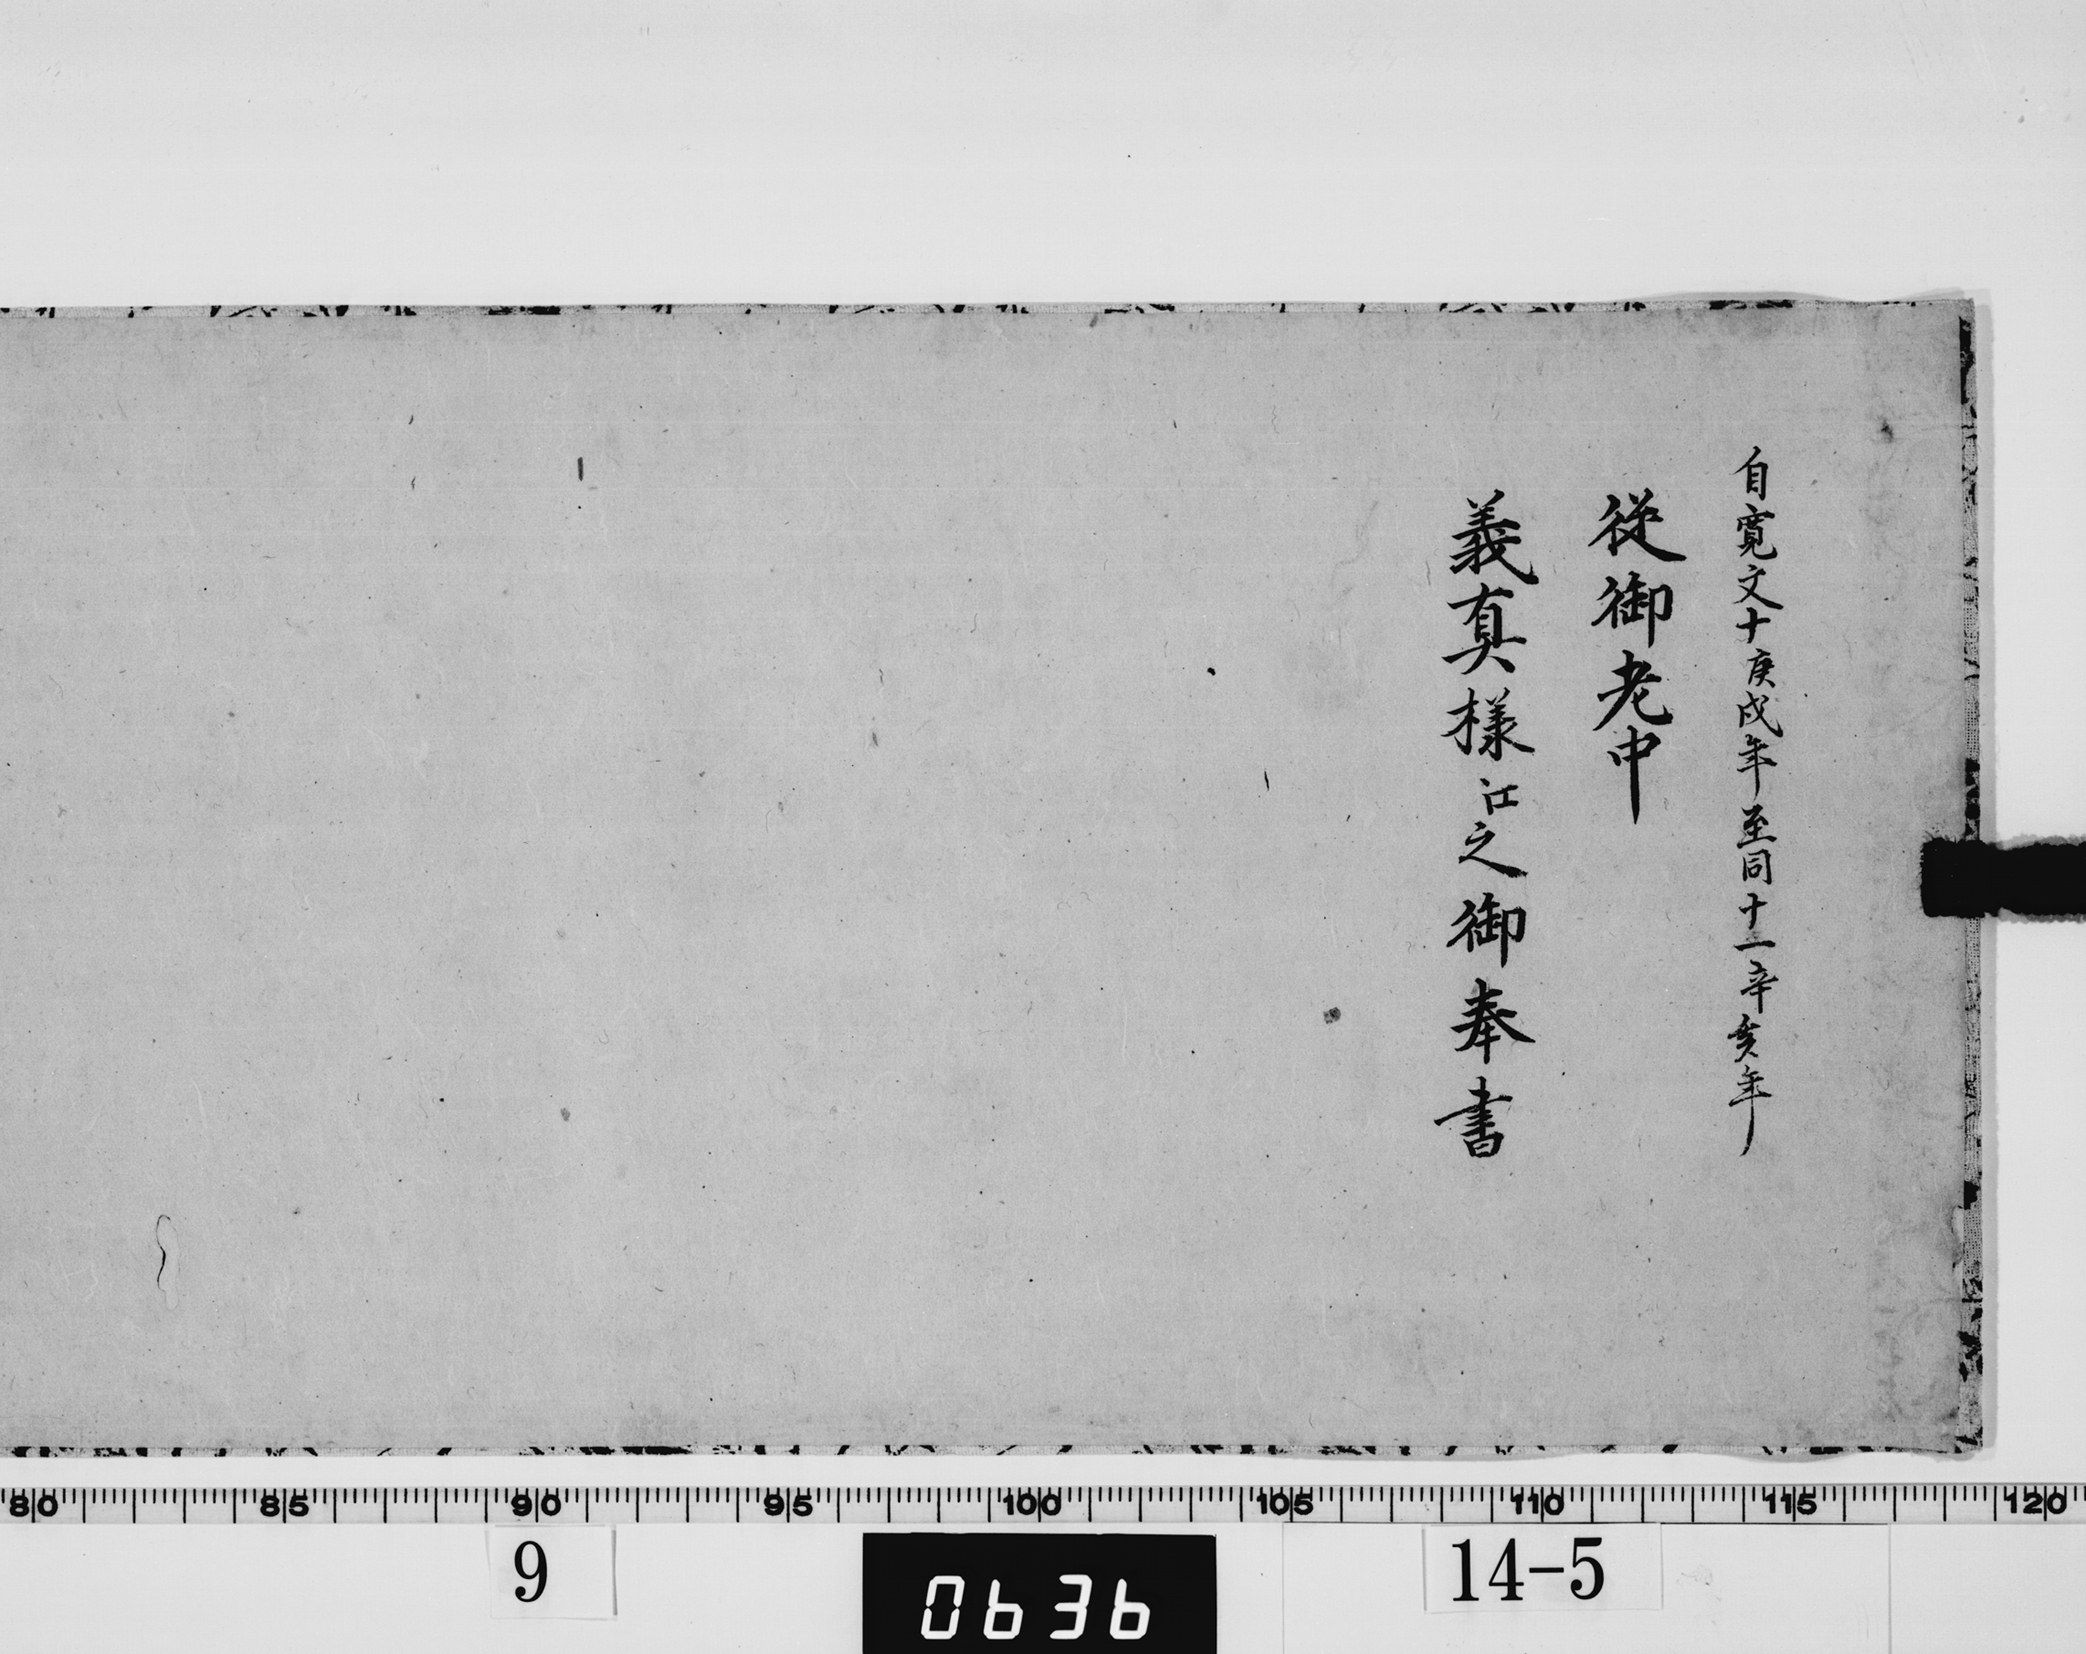 自寛文十庚戌年至同十一辛亥年
従御老中
義真様江之御奉書
80 85 90 95 100 105 110 115 120
9
0636
14-5